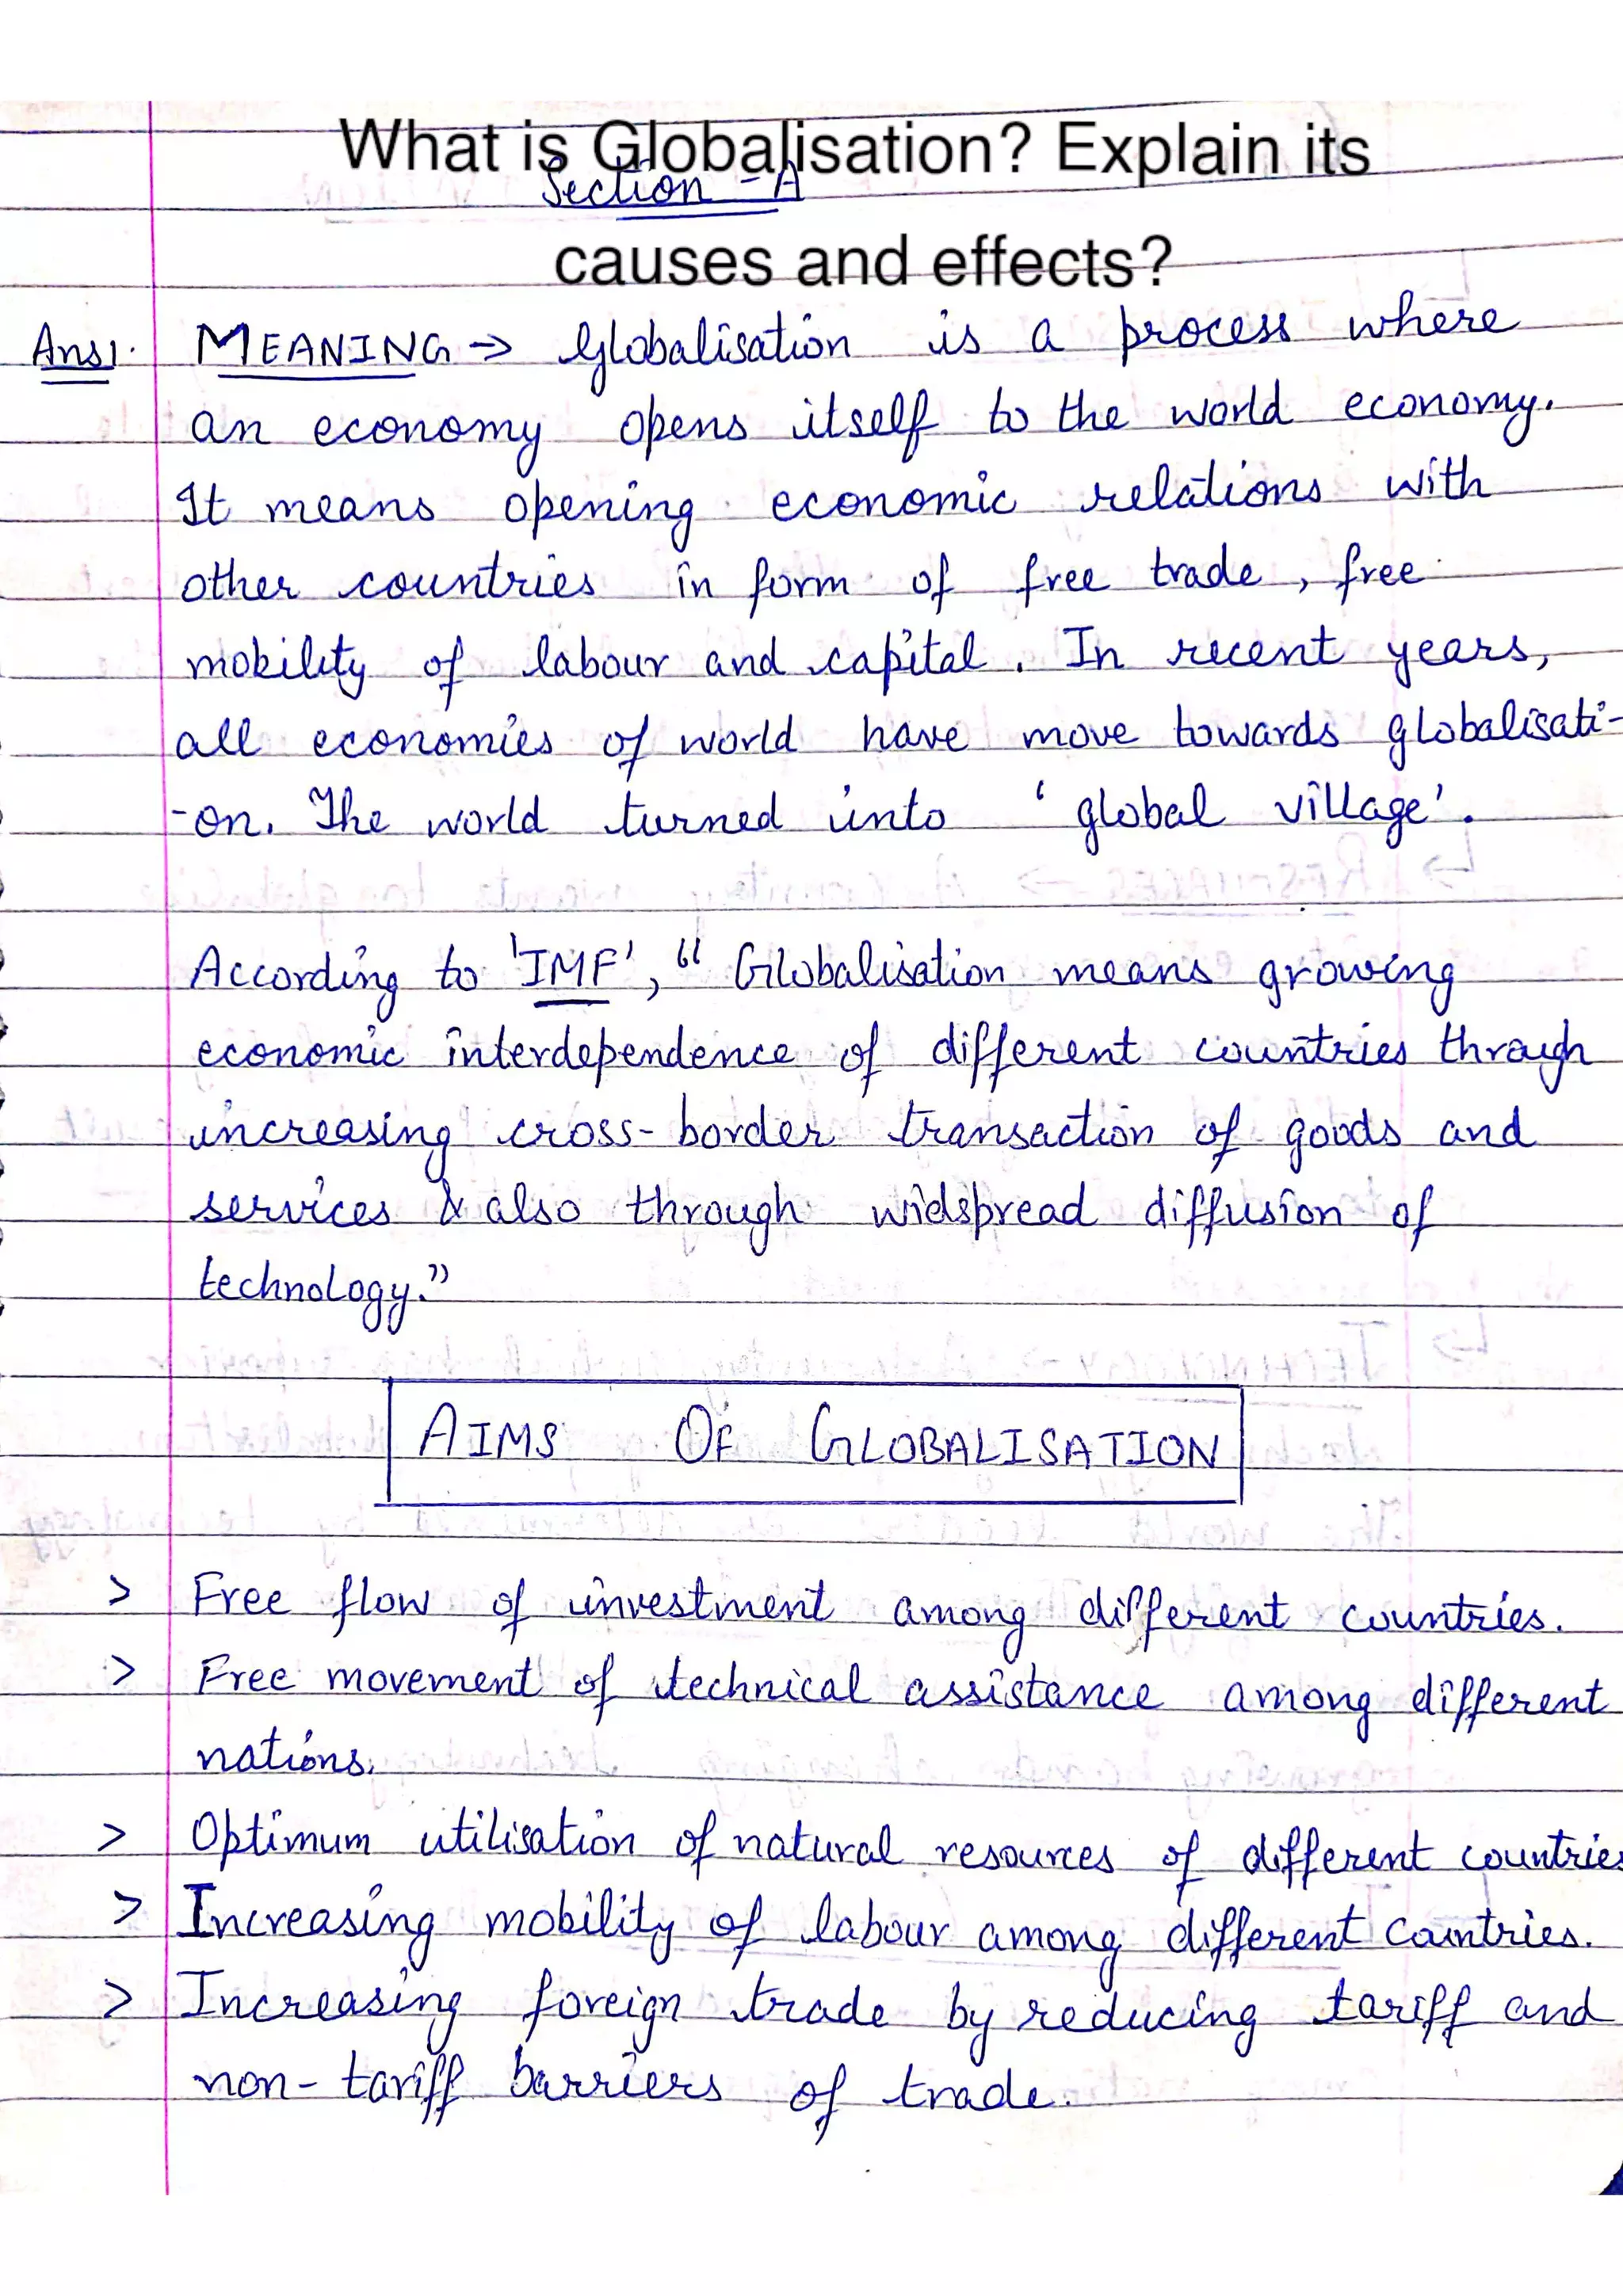 What is Globalisation? Explain its
Section - A
causes and effects?
Ans1. MEANING → Globalisation is a process where
an economy opens itself to the world economy.
It means opening economic relations with
other countries in form of free trade, free
mobility of labour and capital. In recent years,
all economies of world have move towards globalisati-
-on. The world turned into 'global village'.
According to 'IMF', "Globalisation means growing
economic interdependence of different countries through
increasing cross-border transaction of goods and
services & also through widspread diffusion of
technology."
AIMS OF GLOBALISATION
> Free flow of investment among different countries.
> Free movement of technical assistance among different
nations.
> Optimum utilisation of natural resources of different countries
> Increasing mobility of labour among different countries.
> Increasing foreign trade by reducing tariff and
non-tariff barriers of trade.